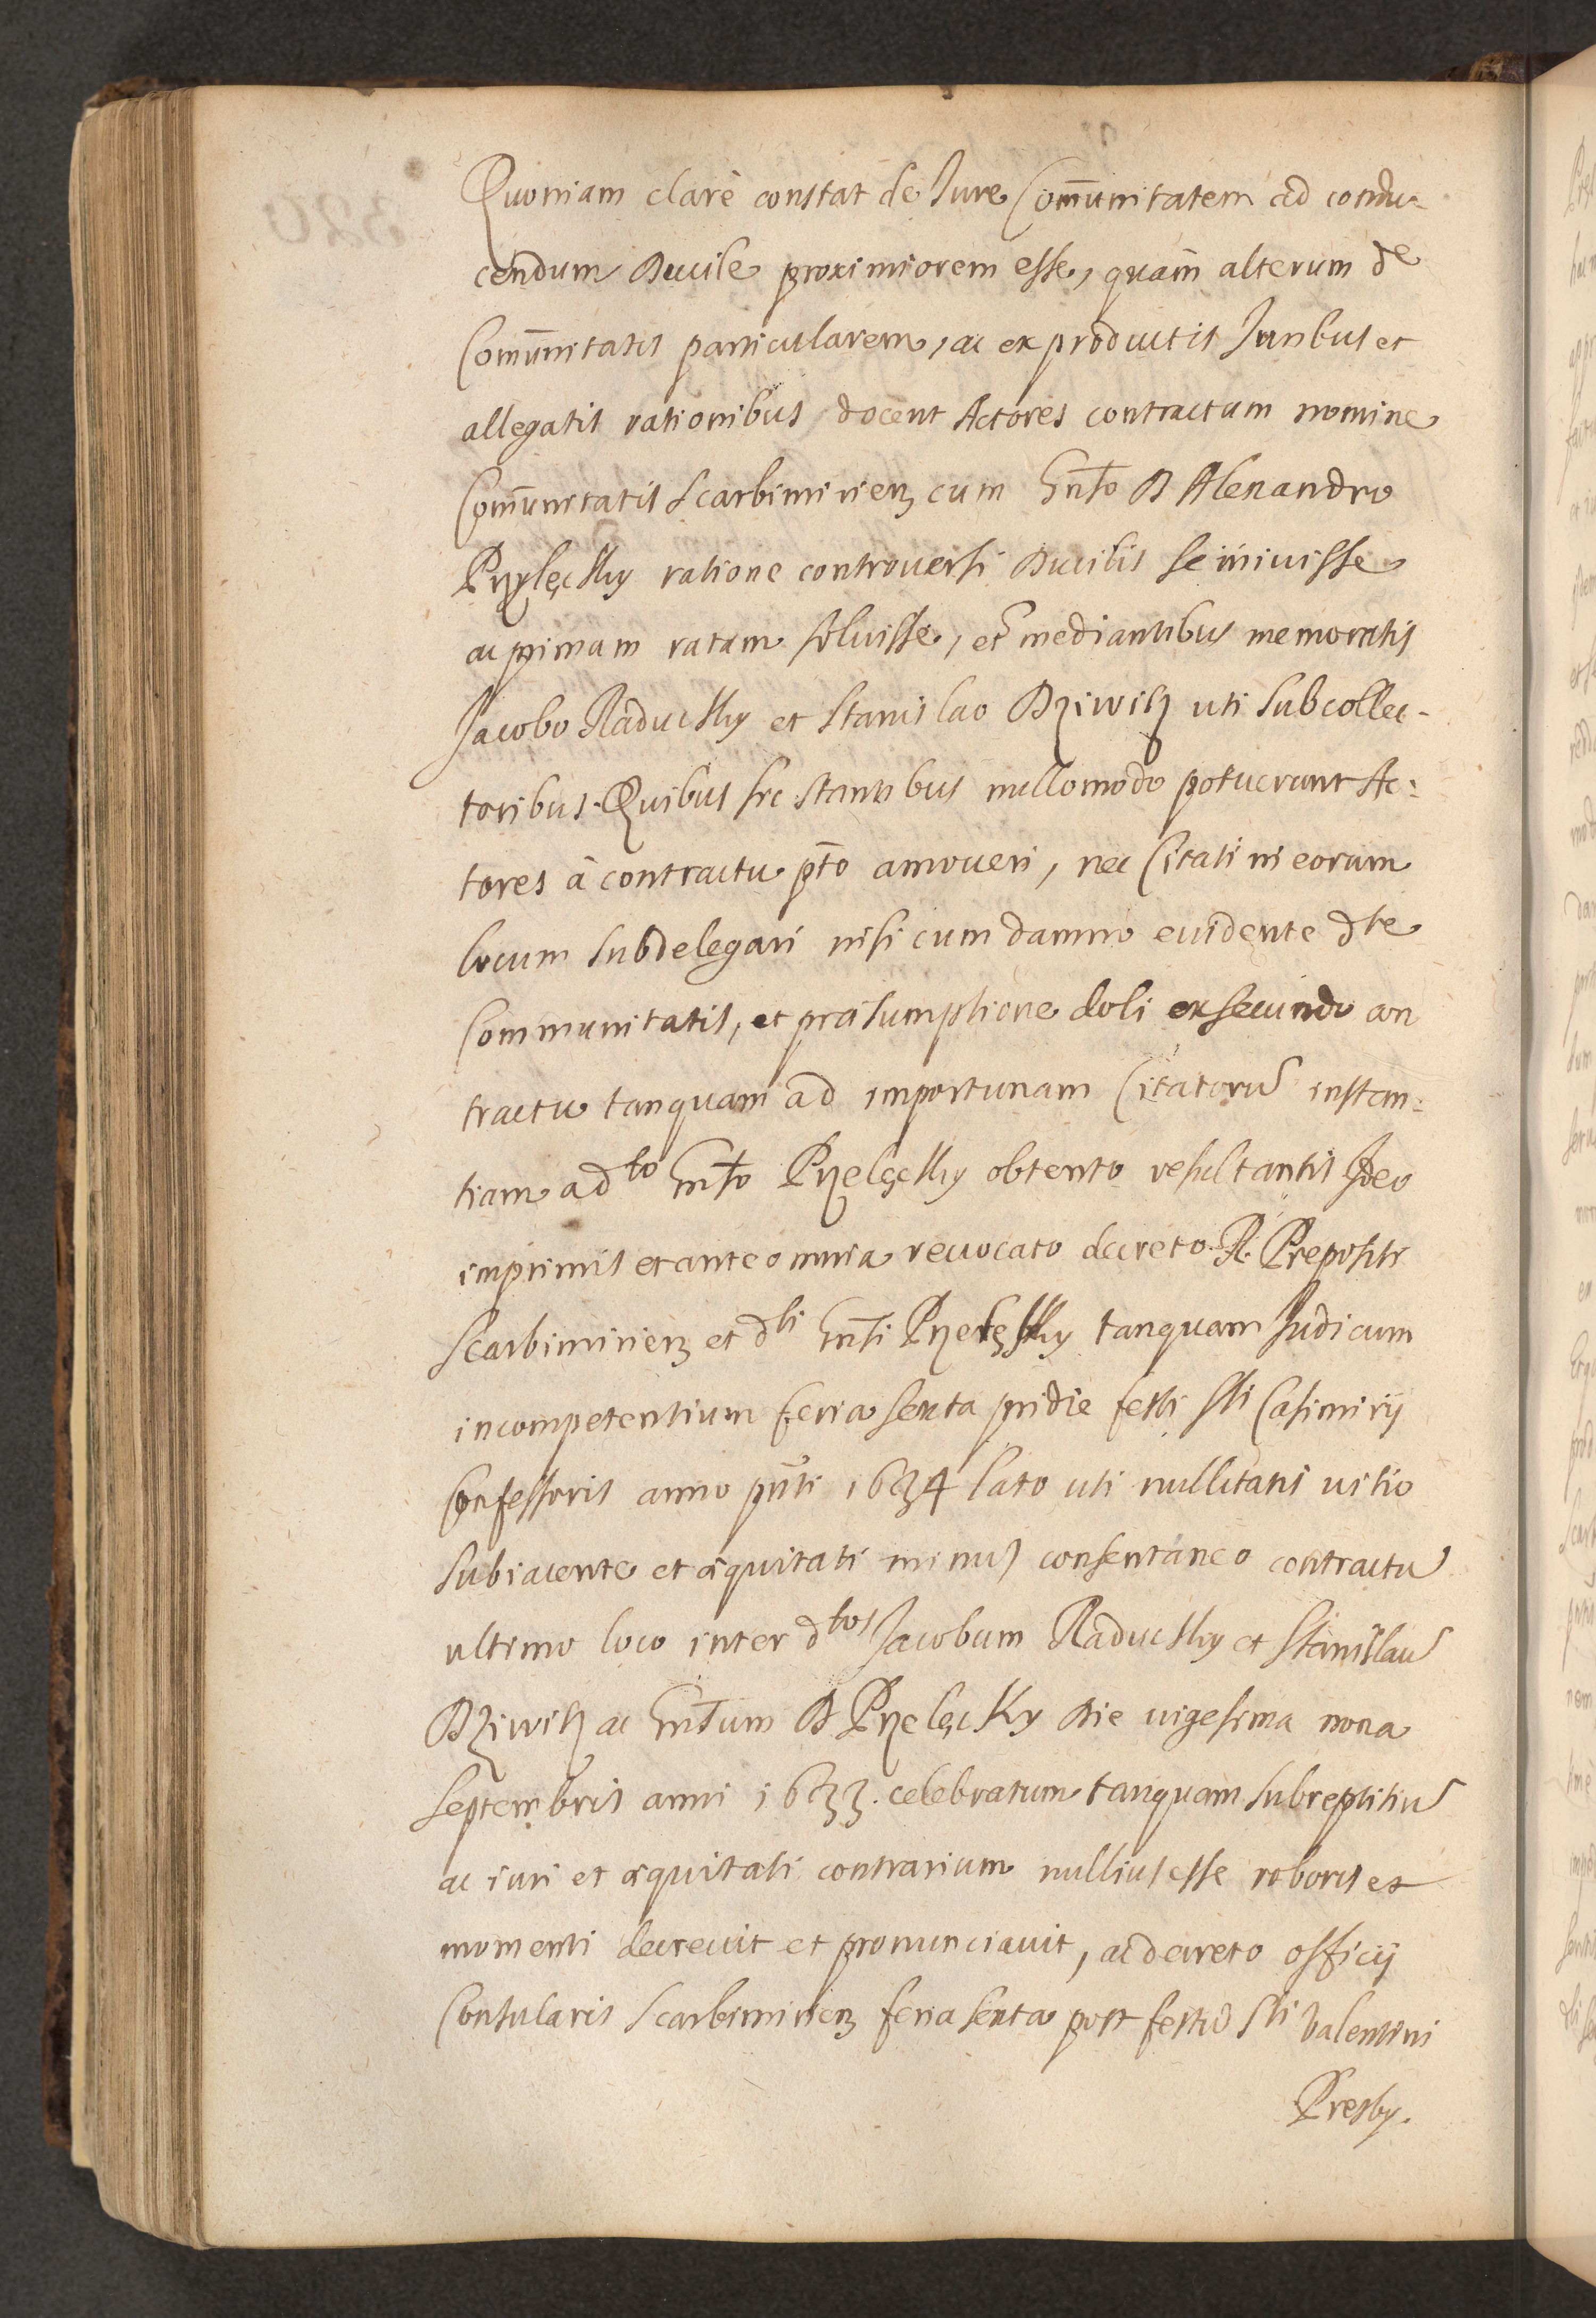 Quoniam clarè constat de Jure Com̄unitatem ad condu-
cendum Ducile proximiorem esse, quam alterum de
Com̄unitatis particularem, ac ex productis Juribus et
allegatis rationibus docent Actores contractum nomine
Com̄unitatis Scarbimirien cum Gnto D Alexandro
Przylęcky ratione controuersi Ducilis se iniuisse
ac primam ratam soluisse, et mediantibus memoratis
Jacobo Raducky et Stanislao Dziwisz uti Subcollec-
toribus. Quibus sic stantibus nullomodo potuerunt Ac:
tores à contractu pto amoueri, nec Citati in eorum
locum subdelegari nisi cum damno euidente dte
Communitatis, et præsumptione doli ex secundo con
tractu tanquam ad importunam Citatorũ instan:
tiam a dto Gnto Przelęcky obtento resultantis Ideo
inprimis et ante omnia reuocato decreto R. Prepositi
Scarbimirien et dti Gnti Przelęcky tanquam Judicum
incompetentium feria sexta pridie festi Sti Casimirij
Confessoris anno pñti 1634 lato uti nullitatis uitio
subiacente et æquitati minus consentaneo contractũ
ultimo loco inter dtos Jacobum Raducky et Stanislaũ
Dziwisz ac Gntum D Przelęcky Die uigesima nona
Septembris anni 1633. celebratum tanquam subreptitiũ
ac iuri et æquitati contrarium nullius esse roboris et
momenti decreuit et pronunciauit, ac decreto officij
Consularis Scarbimirien feria sexta post festũ Sti Valentini
Presby.